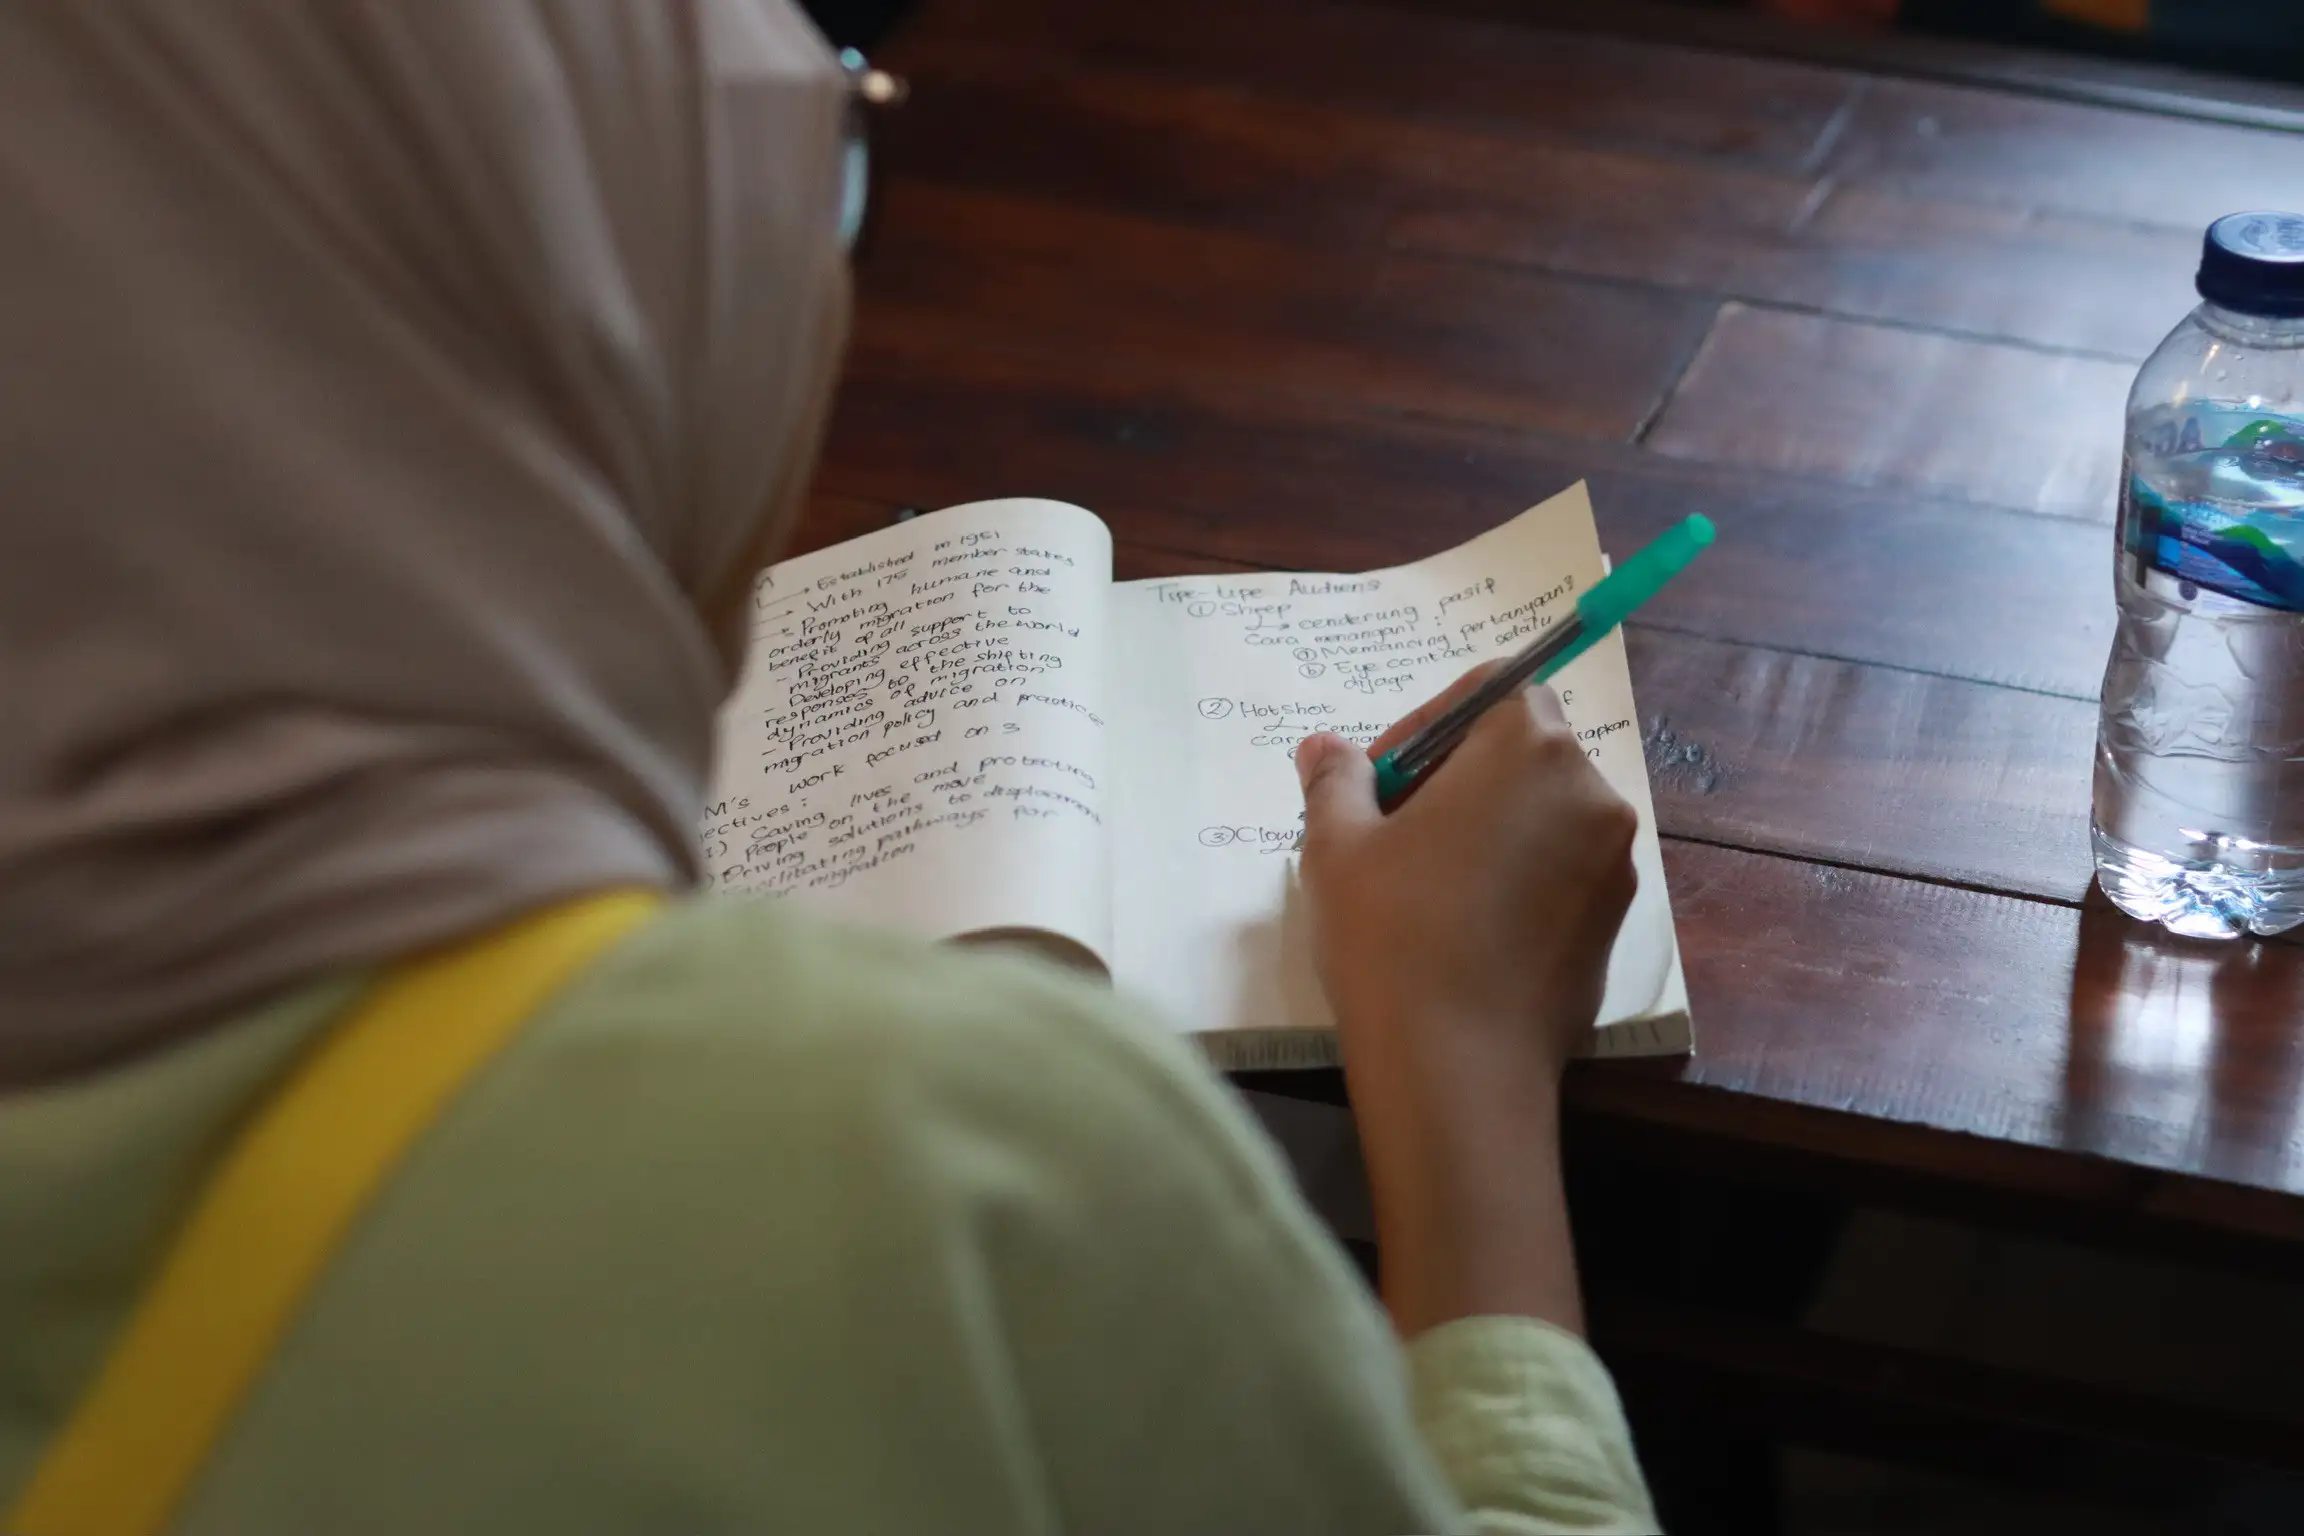 M
Established in 1951
With 175 member states
- Promoting humane and
orderly migration for the
benefit of all
- Providing support to
migrants across the world
- Developing effective
responses to the shifting
dynamics of migration
- Providing advice on
migration policy and practice
M's work focused on 3
ectives:
Saving lives and protecting
people on the move
Driving solutions to displacement
Facilitating pathways for
migration
Tipe-tipe Audiens
① Sheep
cenderung pasif
Cara menangani :
ⓐ Memancing pertanyaan?
ⓑ Eye contact selalu
dijaga
② Hotshot
Cender
f
Cara
rapkan
③ Clow